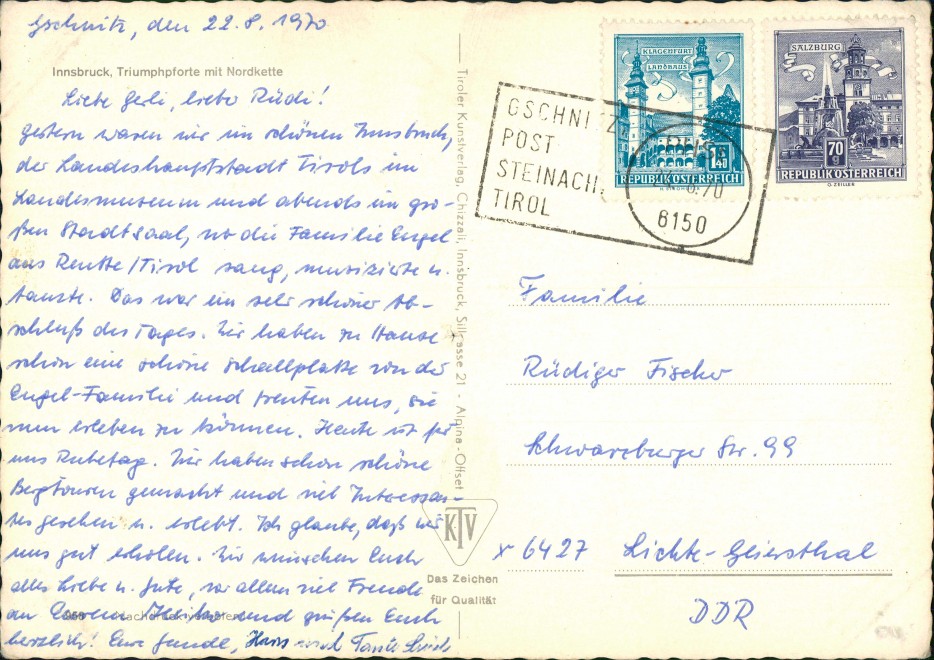 Gschnitz, den 22.8.1970
Innsbruck, Triumphpforte mit Nordkette
Liebe Gerli, lieber Rüdi!
gestern waren wir im schönen Innsbruck,
der Landeshauptstadt Tirols im
Landesmuseum und abends im gro-
ßen Stadtsaal, wo die Familie Engel
aus Reutte/Tirol sang, musizierte u.
tanzte. Das war ein sehr schöner Ab-
schluß des Tages. Wir haben zu Hause
schon eine schöne Schallplatte von der
Engel-Familie und freuten uns, sie
nun erleben zu können. Heute ist für
uns Ruhetag. Wir haben schon schöne
Bergtouren gemacht und viel Interessan-
tes gesehen u. erlebt. Ich glaube, daß wir
uns gut erholen. Wir wünschen Euch
alles Liebe u. Gute, vor allem viel Freude
an Eurem und grüßen Euch
herzlich! Eure Gundl, Hans und Tante
Tiroler Kunstverlag, Chizzali, Innsbruck, Sillgasse 21 · Alpina-Offset
KTV
Das Zeichen
für Qualität
KLAGENFURT
LANDHAUS
S 1.40
REPUBLIK ÖSTERREICH
SALZBURG
70 g
REPUBLIK ÖSTERREICH
G. ZEILLER
GSCHNITZ
POST
STEINACH,
TIROL
8.70
6150
Familie
Rüdiger Fischer
Schwarzburger Str. 99
x 6427 Lichte-Geiersthal
DDR